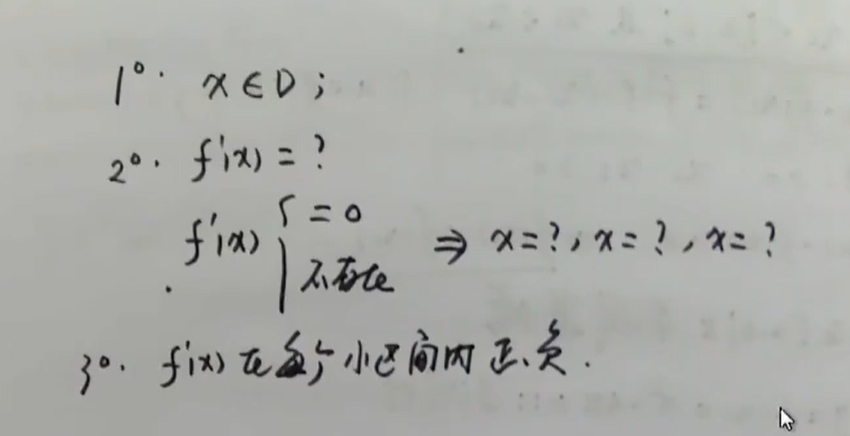 1°. x∈D;
2°. f'(x) = ?
f'(x) { = 0
不存在 ⇒ x=?, x=?, x=?
3°. f'(x) 在每个小区间内正、负.